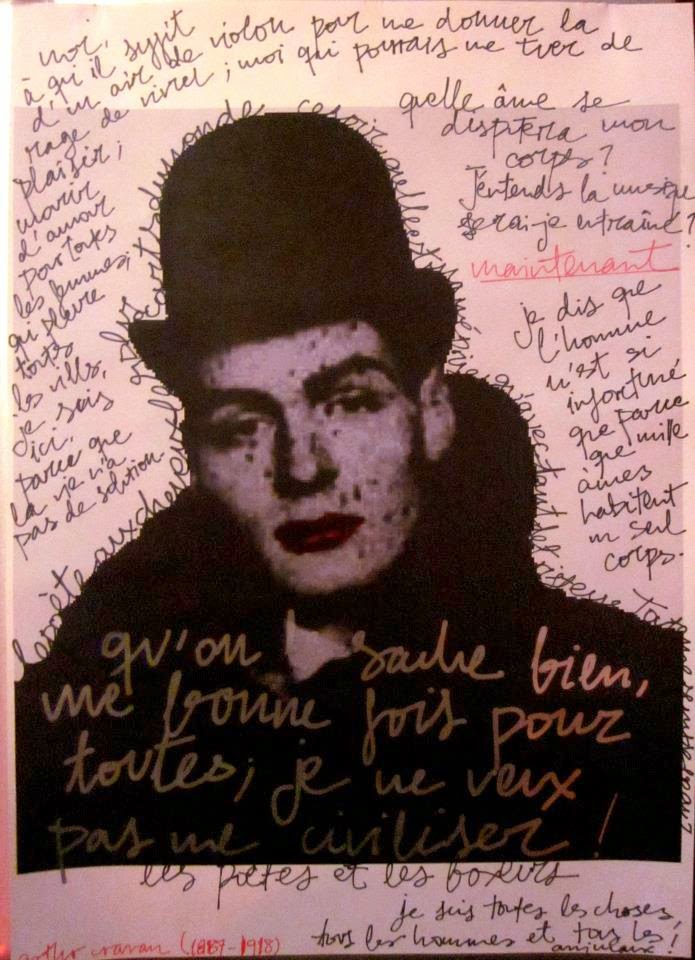 moi,
à qui il suffit
d'un air de violon pour me donner la
rage de vivre ; moi qui pourrais me tuer de
plaisir ;
mourir
d'amour
pour toutes
les femmes ;
qui pleure
toutes
les villes,
je suis
ici,
parce que
la vie n'a
pas de solution.
quelle âme se
disputera mon
corps ?
J'entends la musique
serai-je entraîné ?
maintenant
je dis que
l'homme
n'est si
infortuné
que parce
que mille
âmes
habitent
un seul
corps.
le poète aux cheveux les plus
du monde
ce soir quelle
tristesse
qu'on sache bien,
une bonne fois pour
toutes ; je ne veux
pas me civiliser !
les poètes et les boxeurs
je suis toutes les choses,
tous les hommes et tous les
animaux !
arthur cravan (1887-1918)